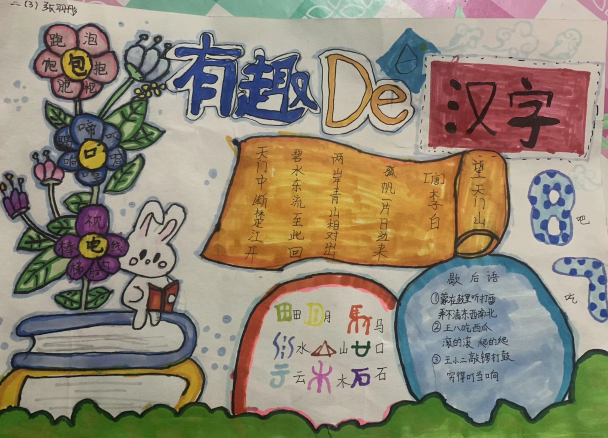 二(3) 张羽彤
有趣De汉字
跑 泡
饱 包 抱
口
电
望天门山
[唐]李白
天门中断楚江开
碧水东流至此回
两岸青山相对出
孤帆一片日边来
8 吧
7 吃
田 月 马
水 山 口
云 木 石
歇后语
①蒙在鼓里听打雷
弄不清东西南北
②王八吃西瓜
滚的滚 爬的爬
③王小二敲锣打鼓
穷得叮当响